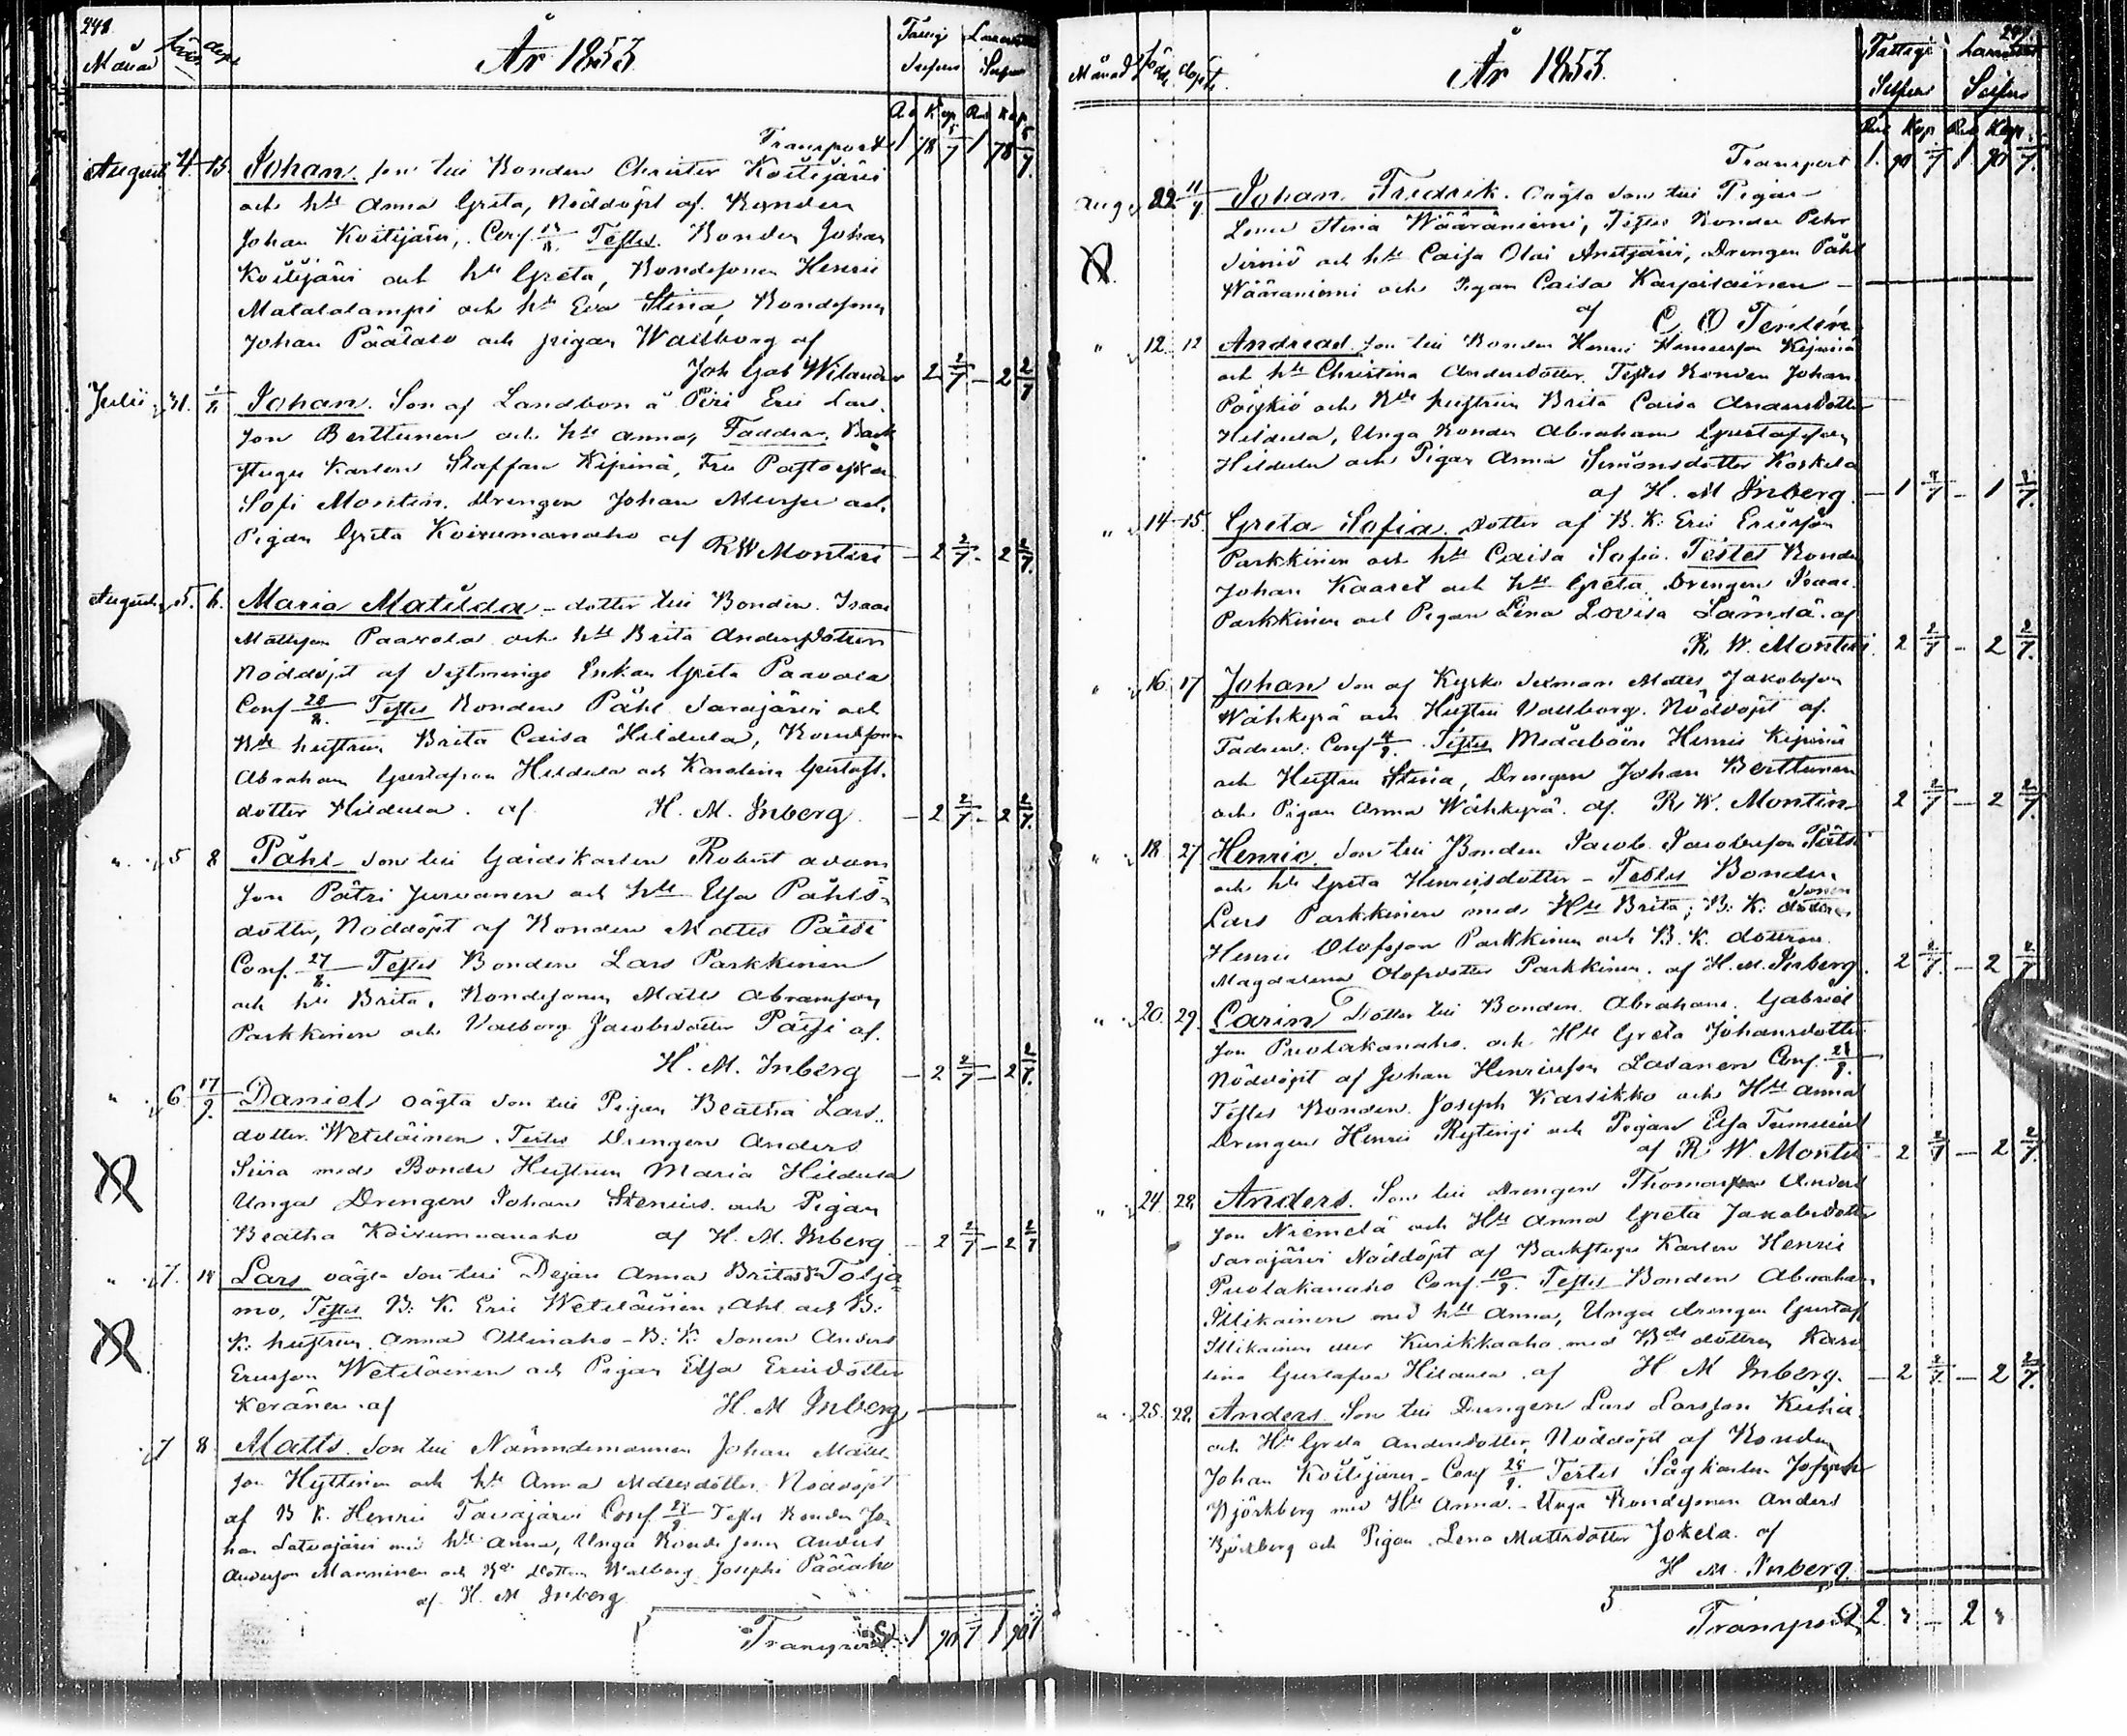 248.
Månad födde döpt
År 1853.
Fattigs Lazaretts
Transport 1 78 5/7 1 78 5/7
August 4. 15. Johan. son till Bonden Christer Koitijärvi
och h: Anna Greta, Nöddöpt af Bonden
Johan Koitijärvi, Conf. Testes. Bonden Johan
Koitijärvi och h: Greta, Bondesonen Henric
Matalalampi och h: Eva Stina, Bondesonen
Johan Päätalo och pigan Wallborg af
Joh Gab Wilander 2 2/7 – 2 2/7
Julii 31. Johan. Son af Landbon å Piri Eric Lars
son Berttunen och h: Anna, Faddrar. Back
stugu Karlen Staffan Kipinä, Fru
Sofi Montin. Drengen Johan Mursu och
Pigan Greta Koirumanaho af RW Montin – 2 2/7 – 2 2/7
August 5. 6. Maria Matilda – dotter till Bonden Isaac
Mattsson Paavola och h: Brita Andersdotter
Nöddöpt af Enkan Greta Paavola
Conf 28/8. Testes Bonden Påhl Sarajärvi och
hustrun Brita Caisa Hildula, Bondesonen
Abraham Gustafsson Hildula och Karolina Gustafs
dotter Hildula. af H. M. Inberg – 2 2/7 – 2 2/7
" 5 8 Påhl – son till Gårdskarlen Robert Adams
son Pätsi Jurvanen och h: Elsa Påhls=
dotter, Nöddöpt af Bonden Matts Pätsi
Conf. 27/8 Testes Bonden Lars Parkkinen
och h: Brita, Bondesonen Matts Abramsson
Parkkinen och Valborg Jacobsdotter Pätsi af
H. M. Inberg – 2 2/7 – 2 2/7
" 6. 17/9. Daniel oägta son till Pigan Beatha Lars
dotter Weteläinen. Testes Drengen Anders
Siira med Bonde Hustrun Maria Hildula
Unga Drengen Johan Stenius och Pigan
Beatha Koirumanaho af H. M. Inberg – 2 2/7 – 2 2/7
" 7. 18 Lars oägta son till Anna Brita Tolja
mo, Testes B: K. Eric Weteläinen, och B:
K: hustrun Anna Ollinaho – B: K: Sonen Anders
Ericsson Weteläinen och Pigan Elsa Ericsdotter
Keränen af H. M Inberg
7 8. Matts. son till Nämndemannen Johan Matts
son Hyttinen och h: Anna Mattsdotter. Nöddöpt
af B K. Henric Taivajärvi Conf 28/8 Testes Bonden Jo
han Latvajärvi med h: Anna, Unga Bonde Sonen Anders
Andersson Manninen och dottren Walborg Josephi Pääaho
af H. M Inberg
Transport 1 90 1 90
249.
Månad född döpt
År 1853.
Fattigs Lazaretts
Rub Kop Rub Kop.
Transport 1. 90 1 90
Aug 22. 11/9. Johan Fredrik. Oägta son till Pigan
Lena Stina Wääräniemi, Testes Bonden Pehr
Sirniö och h: Caisa Olai Anetjärvi, Drengen Påhl
Wääräniemi och Pigan Caisa Karjalainen –
af C. O Tenlén
" 12. 12 Andreas. Son till Bonden Henric Henricsson Kipinä
och h: Christina Andersdotter. Testes Bonden Johan
Pöykiö och hustrun Brita Caisa Andersdotter
Hildula, Unga Bonden Abraham Gustafsson
Hildula och Pigan Anna Simonsdotter Koskela
af H. M Inberg. – 1 – 1
" 14 15. Greta Sofia. Dotter af B. K: Eric Ericsson
Parkkinen och h: Caisa Sofia. Testes Bonden
Johan Kaaret och h: Greta Drengen Isaac
Parkkinen och Pigan Lena Lovisa Lämsä af
R. W. Montin 2 2/7 – 2 2/7
" 16. 17 Johan son af Kyrko Sexman Matts Jakobsson
Wähkyrä och Hustru Vallborg. Nöddöpt af
Fadren. Conf 4/9. Testes Medåboen Henric Kipinä
och Hustru Stina, Drengen Johan Berttunen
och Pigan Anna Wähkyrä. af R. W. Montin 2 2/7 – 2 2/7
" 18 27 Henric. Son till Bonden Jacob Jacobsson Pätsi
och h: Greta Henricsdotter – Testes Bonden
Lars Parkkinen med H: Brita; B: K: Sonen
Henric Olofsson Parkkinen och B. K. dottren
Magdalena Olofsdotter Parkkinen. af H. M. Inberg. 2 2/7 – 2 2/7
" 20. 29. Carin Dotter till Bonden Abraham Gabriel
son Puolakanaho och H: Greta Johansdotter
Nöddöpt af Johan Henricsson Lasanen Conf.
Testes Bonden Joseph Karsikko och H: Anna
Drengen Henric Rytingi och Pigan Elsa
af R. W. Montin 2 2/7 – 2 2/7
" 24. 28. Anders. Son till Drengen Thomas Anders
son Niemelä och H: Anna Greta Jakobsdotter
Sarajärvi Nöddöpt af Backstugu Karlen Henric
Puolakanaho Conf. 10/9. Testes Bonden Abraham
Illikainen med h: Anna, Unga drengen Gustaf
Illikainen eller Kurikkaaho med dottren Karo
lina Gustafva Hildula. af H M Inberg. – 2 2/7 – 2 2/7
" 25. 28. Anders. Son till Drengen Lars Larsson Kuha
och H: Greta Andersdotter, Nöddöpt af Bonden
Johan Koitijärvi – Conf 25/9. Testes Sågkarlen Joseph
Björkberg med H: Anna. – Unga Bondesonen Anders
Björkberg och Pigan Lena Mattsdotter Jokela. af
H M. Inberg.
Transport 2 – 2